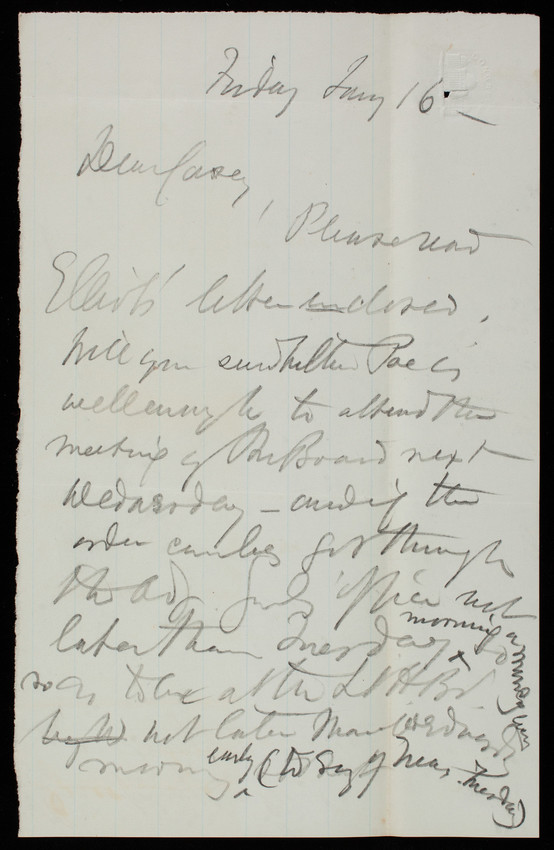 Friday Jany 16 —
Dear Casey,
Please read
Elliots' letter enclosed.
Will you send whether Poe is
well enough to attend the
meeting of the Board next
Wednesday — and if the
order can be got through
the Adj. Genls Office not
later than Tuesday morning
so as to be at the L H Bd
not later than Wednesday
morning early (to say of Tuesday)